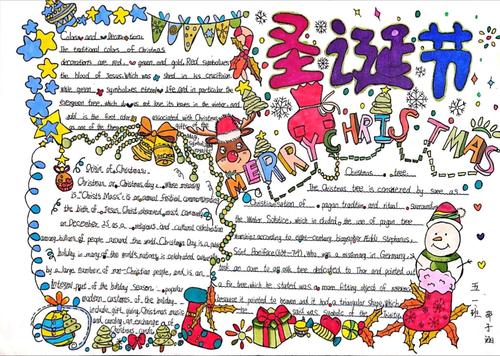 圣诞节
MERRY CHRISTMAS
Colors and
The traditional colors of Christmas
decorations are red, green and gold. Red symbolizes
the blood of Jesus, which was shed in his crucifixion
while green symbolizes eternal life and in particular the
evergreen tree, which does not lose its leaves in the winter and
gold is the first color associated with Christmas
as one of the three
Origin of Christmas
Christmas or Christmas day meaning
is "Christ's Mass" is an annual festival commemorating
the birth of Jesus Christ observed most commonly
on December 25 as a religious and cultural celebration
among billions of people around the world. Christmas Day is a public
holiday in many of the world's nations, is celebrated
by a large number of non-Christian people, and is an
integral part of the holiday season. popular
modern customs of the holiday
include gift giving Christmas music
and caroling, an exchange of
Christmas cards
Christmas tree
The Christmas tree is considered by some as
Christianisation of pagan tradition and ritual surrounding
the Winter Solstice, which included the use of pagan tree
worship according to eighth-century biographer Æddi Stephanus,
Saint Boniface (634-709), who was a missionary in Germany,
took an axe to an oak tree dedicated to Thor and pointed out
a fir tree, which he stated was a more fitting object of reverence
because it pointed to heaven and it had a triangular shape, which
he said was symbolic of the Trinity.
五一班